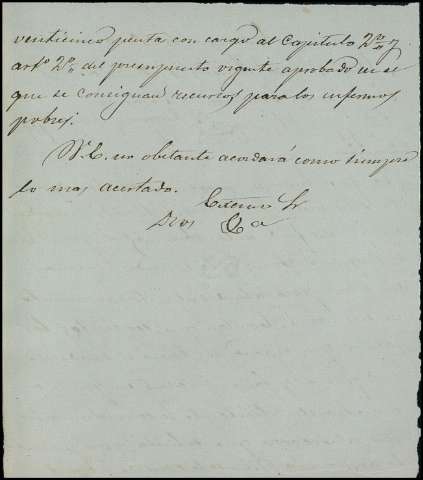 venticinco pesetas con cargo al Capitulo 2º y
artº 2º del presupuesto vigente aprobado en el
que se consignan recursos para los enfermos
pobres.
V. E. no obstante acordará como siempre
lo mas acertado.
Excmo Sr
Dios